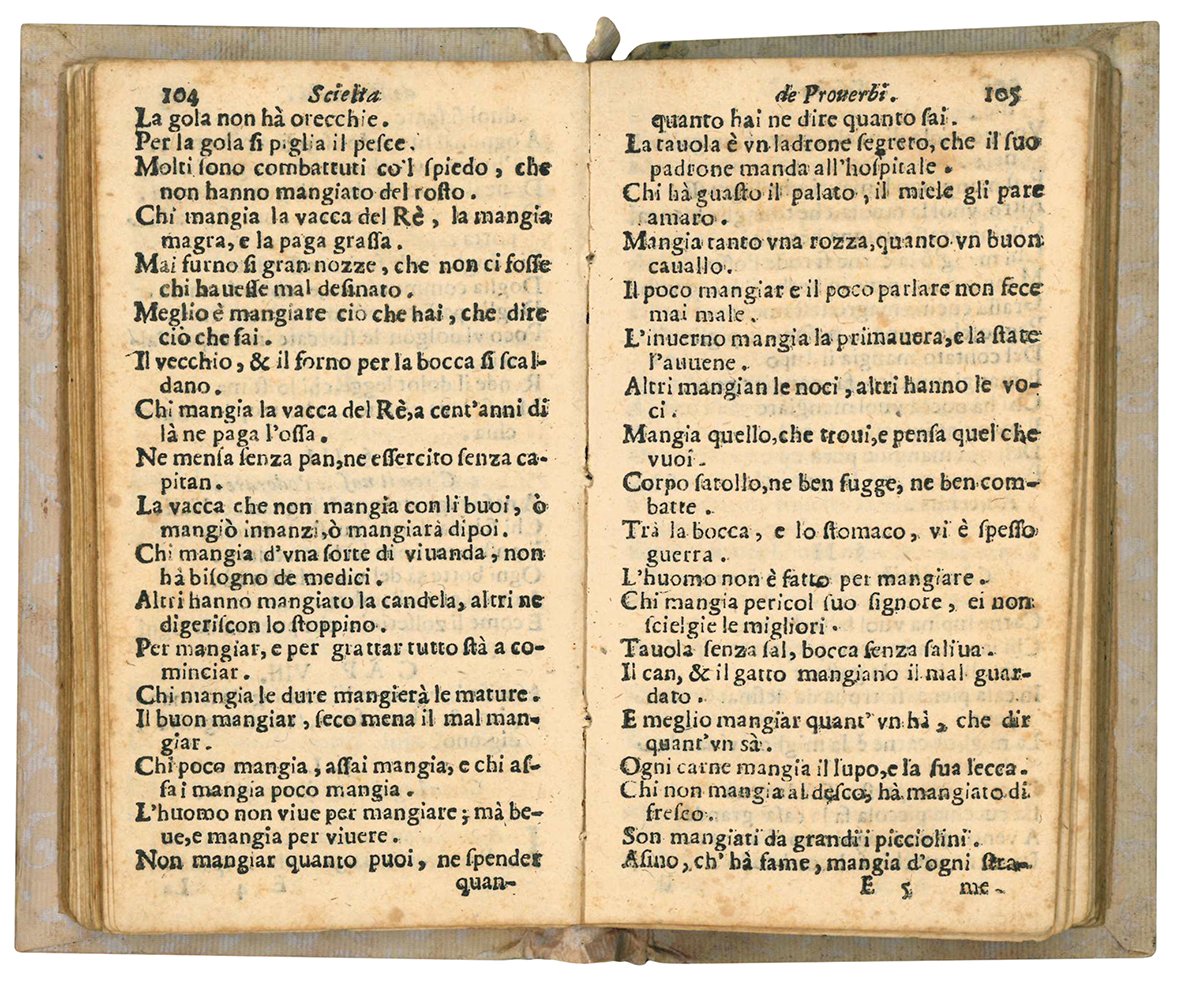 104 Scielta
La gola non hà orecchie.
Per la gola ſi piglia il peſce.
Molti ſono combattuti co'l ſpiedo, che
non hanno mangiato del roſto.
Chi mangia la vacca del Rè, la mangia
magra, e la paga graſſa.
Mai furno ſi gran nozze, che non ci foſſe
chi haueſſe mal deſinato.
Meglio è mangiare ciò che hai, che dire
ciò che fai.
Il vecchio, & il forno per la bocca ſi ſcal-
dano.
Chi mangia la vacca del Rè,a cent'anni di
là ne paga l'oſſa.
Ne menſa ſenza pan,ne eſſercito ſenza ca-
pitan.
La vacca che non mangia con li buoi, ò
mangiò innanzi,ò mangiarà dipoi.
Chi mangia d'vna ſorte di viuanda, non
hà biſogno de medici.
Altri hanno mangiato la candela, altri ne
digeriſcon lo ſtoppino.
Per mangiar, e per grattar tutto ſtà a co-
minciar.
Chi mangia le dure mangierà le mature.
Il buon mangiar, ſeco mena il mal man-
giar.
Chi poco mangia, aſſai mangia, e chi aſ-
ſai mangia poco mangia.
L'huomo non viue per mangiare; mà be-
ue,e mangia per viuere.
Non mangiar quanto puoi, ne ſpender
quan-
de Prouerbi. 105
quanto hai ne dire quanto ſai.
La tauola è vn ladrone ſegreto, che il ſuo
padrone manda all'hoſpitale.
Chi hà guaſto il palato, il miele gli pare
amaro.
Mangia tanto vna rozza,quanto vn buon
cauallo.
Il poco mangiar e il poco parlare non fece
mai male.
L'inuerno mangia la primauera,e la ſtate
l'auuene.
Altri mangian le noci, altri hanno le vo-
ci.
Mangia quello,che troui,e penſa quel che
vuoi.
Corpo ſatollo,ne ben fugge, ne ben com-
batte.
Trà la bocca, e lo ſtomaco, vi è ſpeſſo
guerra.
L'huomo non è fatto per mangiare.
Chi mangia pericol ſuo ſignore, ei non
ſcielgie le migliori.
Tauola ſenza ſal, bocca ſenza ſaliua.
Il can, & il gatto mangiano il mal guar-
dato.
E meglio mangiar quant' vn hà, che dir
quant'vn sà.
Ogni carne mangia il lupo,e la ſua lecca.
Chi non mangia al deſco, hà mangiato di
freſco.
Son mangiati da grandi i picciolini.
Aſino, ch' hà fame, mangia d'ogni ſtra-
E 5 me-